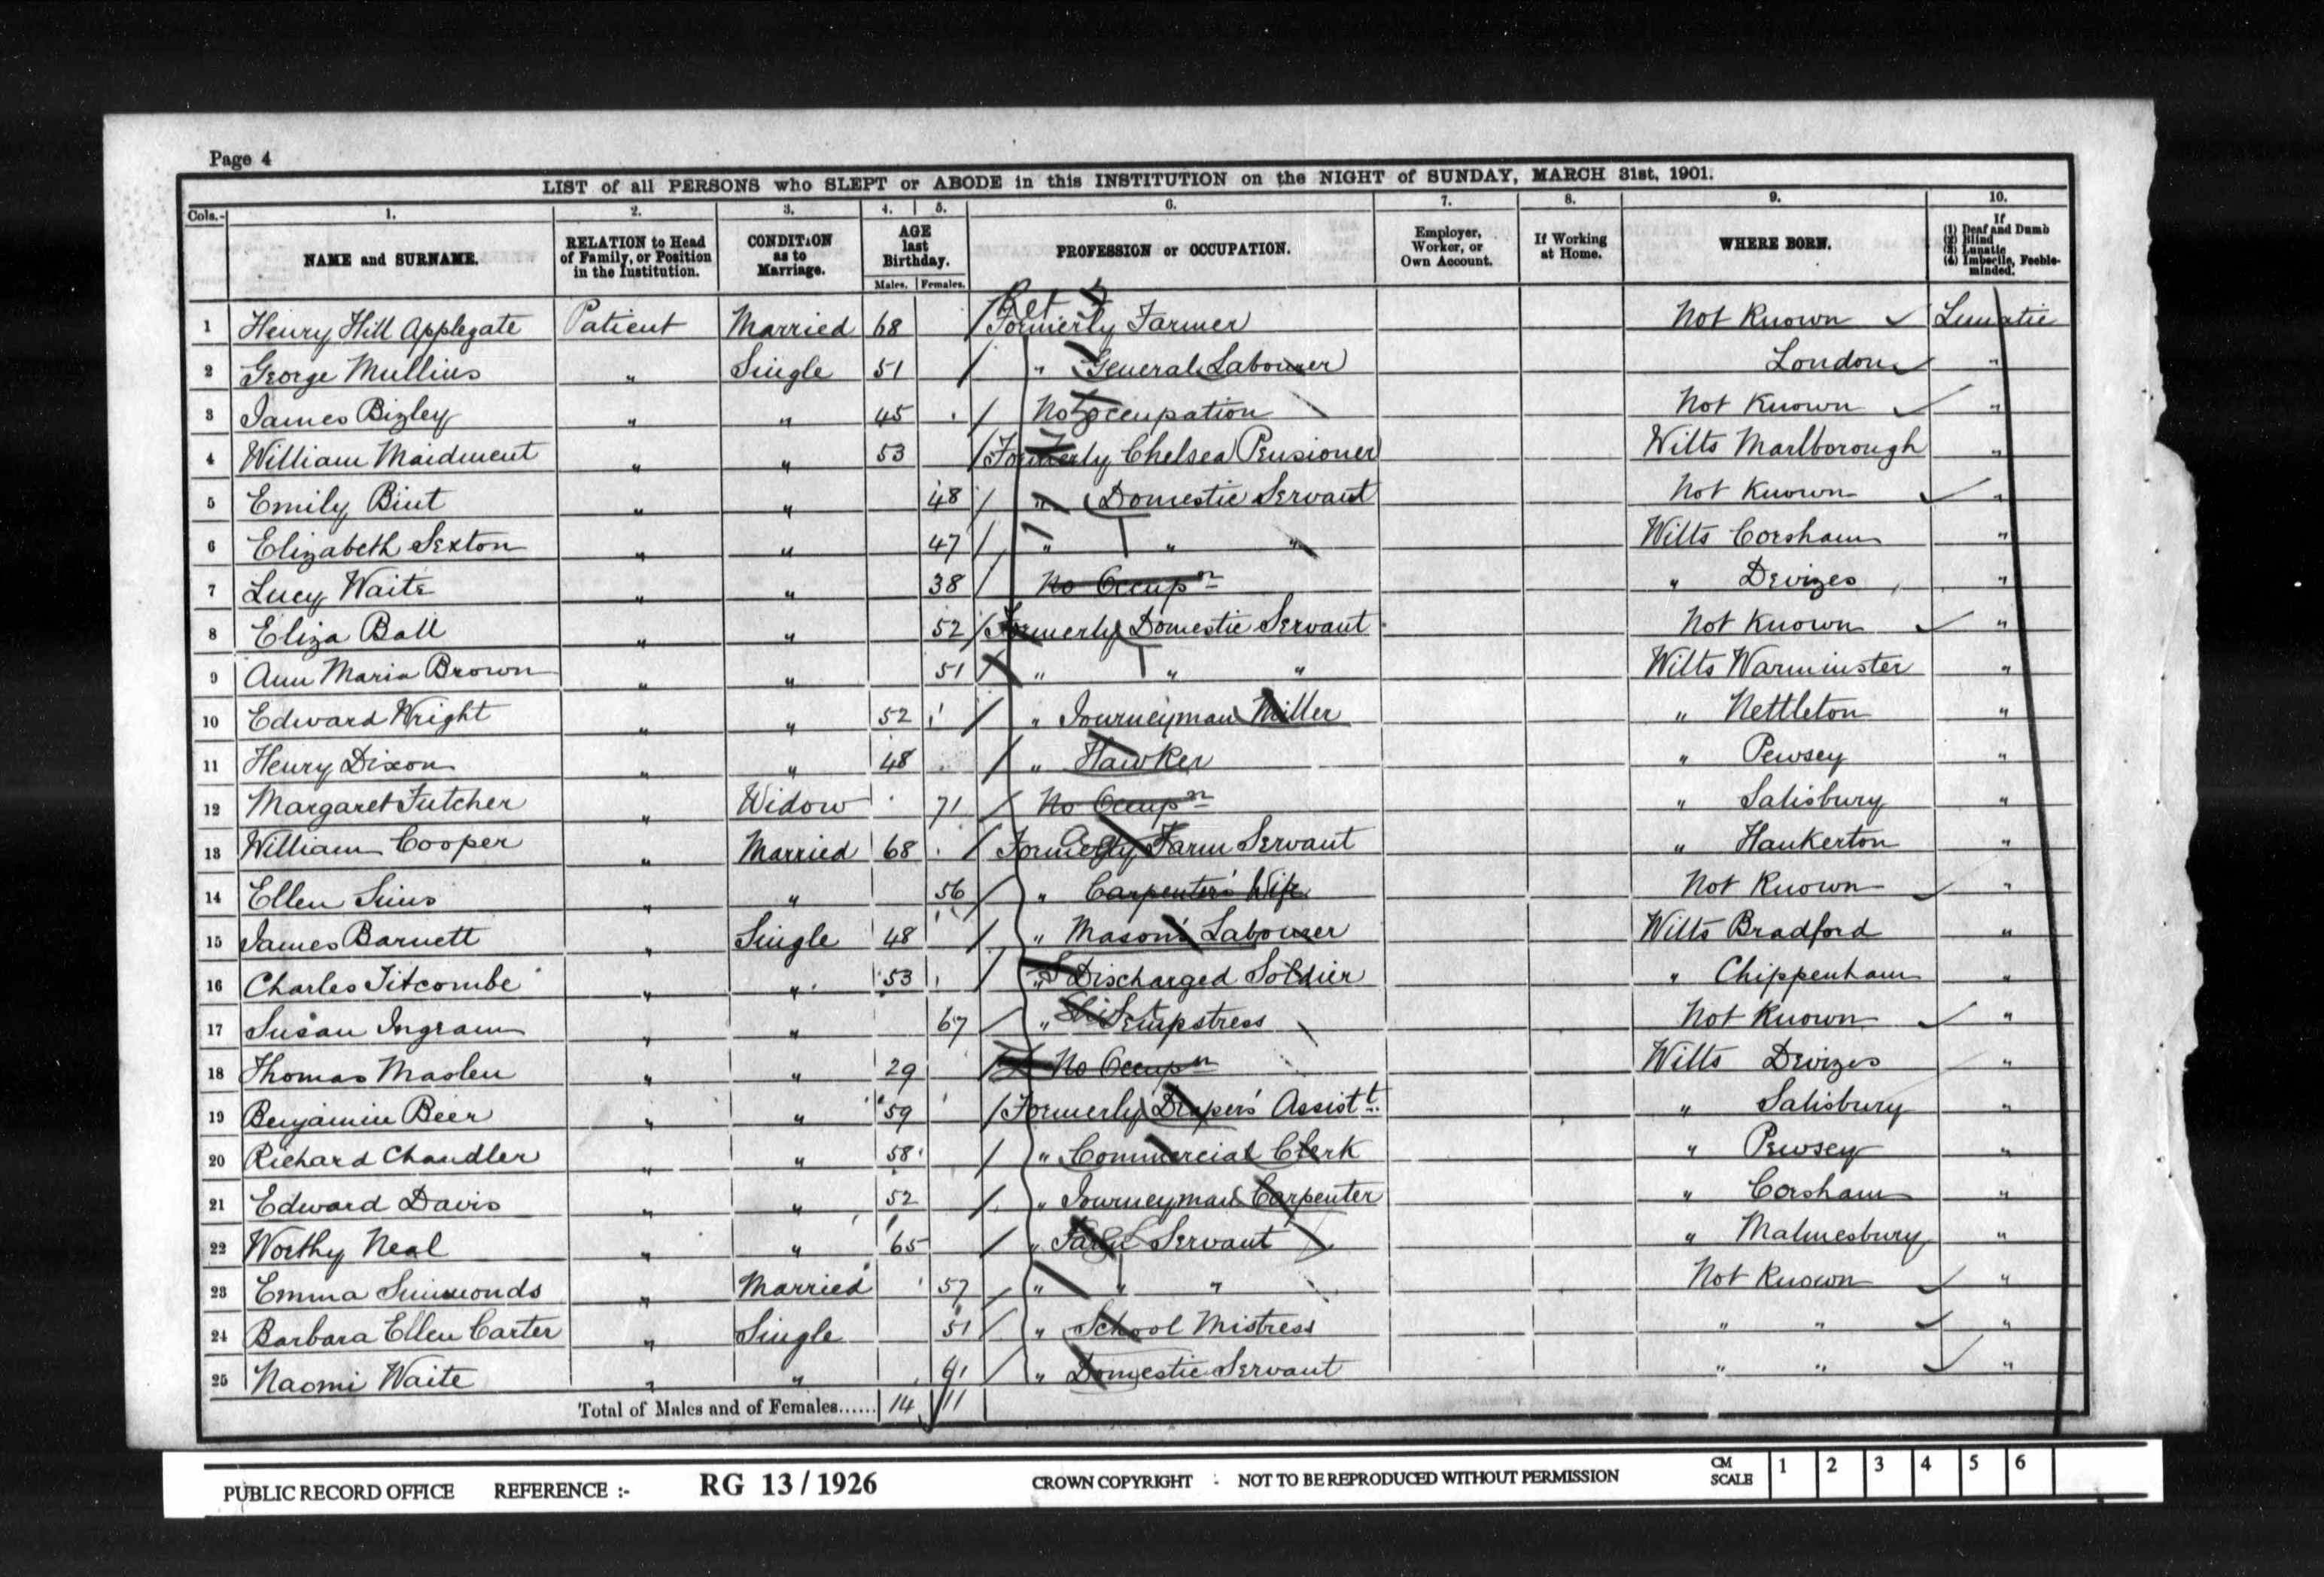 Page 4
LIST of all PERSONS who SLEPT or ABODE in this INSTITUTION on the NIGHT of SUNDAY, MARCH 31st, 1901.
Cols.- 1. 2. 3. 4. 5. 6. 7. 8. 9. 10.
NAME and SURNAME. RELATION to Head of Family, or Position in the Institution. CONDITION as to Marriage. AGE last Birthday. Males. Females. PROFESSION or OCCUPATION. Employer, Worker, or Own Account. If Working at Home. WHERE BORN. If (1) Deaf and Dumb (2) Blind (3) Lunatic (4) Imbecile, Feeble-minded.
Ret
1 Henry Hill Applegate Patient Married 68 Formerly Farmer Not Known Lunatic
2 George Mullins " Single 51 " General Labourer London "
3 James Bizley " " 45 No occupation Not Known "
4 William Maidment " " 53 Formerly Chelsea Pensioner Wilts Marlborough "
5 Emily Bint " " 48 " Domestic Servant Not Known "
6 Elizabeth Sexton " " 47 " " " Wilts Corsham "
7 Lucy Waite " " 38 No Occupn " Devizes "
8 Eliza Ball " " 52 Formerly Domestic Servant Not Known "
9 Ann Maria Brown " " 51 " " " Wilts Warminster "
10 Edward Wright " " 52 " Journeyman Miller " Nettleton "
11 Henry Dixon " " 48 " Hawker " Pewsey "
12 Margaret Futcher " Widow 71 No Occupn " Salisbury "
13 William Cooper " Married 68 Formerly Farm Servant " Hankerton "
14 Ellen Sims " " 56 " Carpenter's Wife Not Known "
15 James Barnett " Single 48 " Mason's Labourer Wilts Bradford "
16 Charles Titcombe " " 53 " Discharged Soldier " Chippenham "
17 Susan Ingram " " 67 " Sempstress Not Known "
18 Thomas Maslen " " 29 No Occupn Wilts Devizes "
19 Benjamin Beer " " 59 Formerly Drapers' Assistt. " Salisbury "
20 Richard Chandler " " 58 " Commercial Clerk " Pewsey "
21 Edward Davis " " 52 " Journeyman Carpenter " Corsham "
22 Worthy Neal " " 65 " Farm Servant " Malmesbury "
23 Emma Simmonds " Married 57 " " " Not Known "
24 Barbara Ellen Carter " Single 51 " School Mistress " " "
25 Naomi Waite " " 61 " Domestic Servant " " "
Total of Males and of Females...... 14 11
PUBLIC RECORD OFFICE REFERENCE :- RG 13/1926 CROWN COPYRIGHT : NOT TO BE REPRODUCED WITHOUT PERMISSION CM SCALE 1 2 3 4 5 6